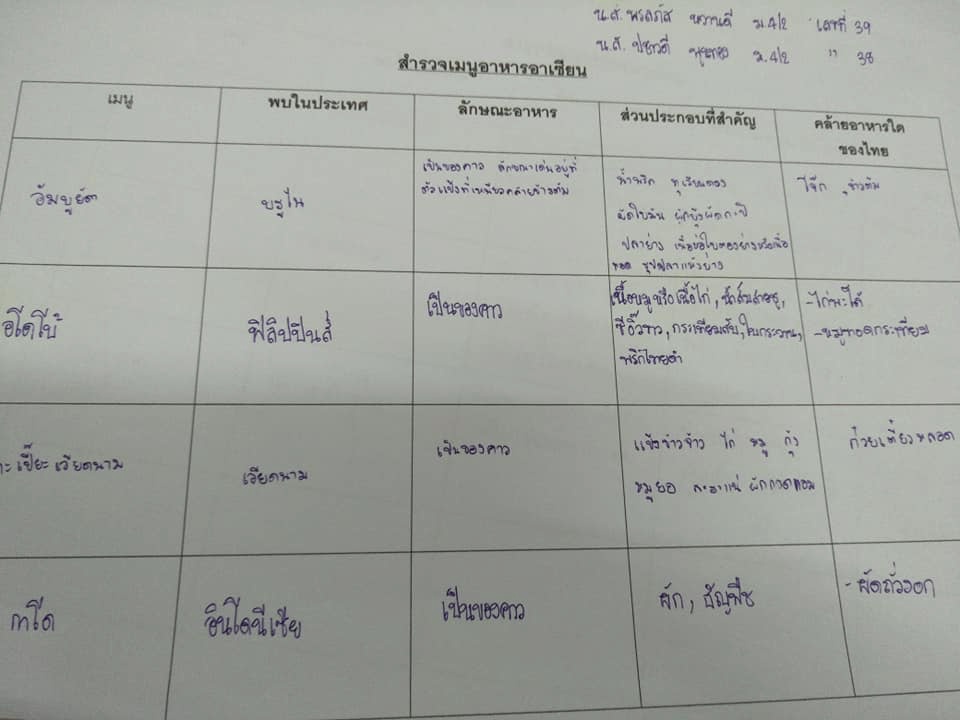 น.ส. ม.4/2 เลขที่ 39
น.ส. ม.4/2 " 38
สำรวจเมนูอาหารอาเซียน
เมนู พบในประเทศ ลักษณะอาหาร ส่วนประกอบที่สำคัญ คล้ายอาหารใด
ของไทย
อัมบูยัต บรูไน
เป็นของคาว ลักษณะเด่นอยู่ที่
ตัวแป้งที่เหนียวคล้ายข้าวต้ม
น้ำพริก ทุเรียนดอง
ผัดใบมัน ผักบุ้งผัดกะปิ
ปลาย่าง เนื้อห่อใบตองย่างหรือเนื้อ
ทอด
โจ๊ก , ข้าวต้ม
อโดโบ้ ฟิลิปปินส์ เป็นของคาว
เนื้อหมูหรือเนื้อไก่ , น้ำส้มสายชู,
ซีอิ๊วขาว, กระเทียมสับ, ใบกระวาน,
พริกไทยดำ
-ไก่พะโล้
-หมูทอดกระเทียม
เปี๊ยะ เวียดนาม เวียดนาม เป็นของคาว
แป้งข้าวจ้าว ไก่ หมู กุ้ง
หมูยอ สะระแหน่ ผักกาดหอม
ก๋วยเตี๋ยวหลอด
กาโด อินโดนีเซีย เป็นของคาว ผัก , ธัญพืช - ผัดถั่วงอก